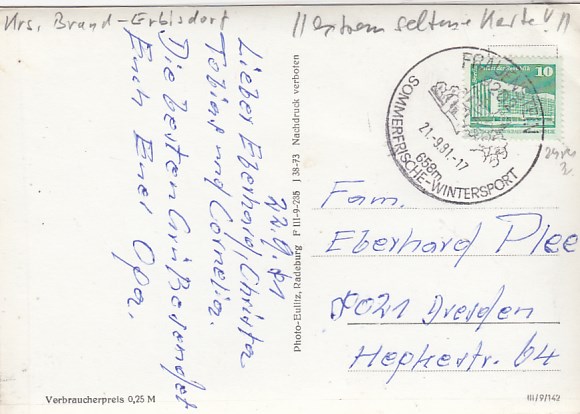 Krs. Brand-Erbisdorf
!! extrem seltene Karte! !!
22.9.81
Lieber Eberhard, Christa
Tobias und Cornelia.
Die besten Grüße sendet
Euch Euer Opa.
Photo-Eulitz, Radeburg P III-9-235 J 38-73 Nachdruck verboten
FRAUENSTEIN
10
21.-9.81.-17
658m
SOMMERFRISCHE-WINTERSPORT
Fam.
Eberhard
8021 Dresden
Hepkestr. 64
Verbraucherpreis 0,25 M
III/9/142